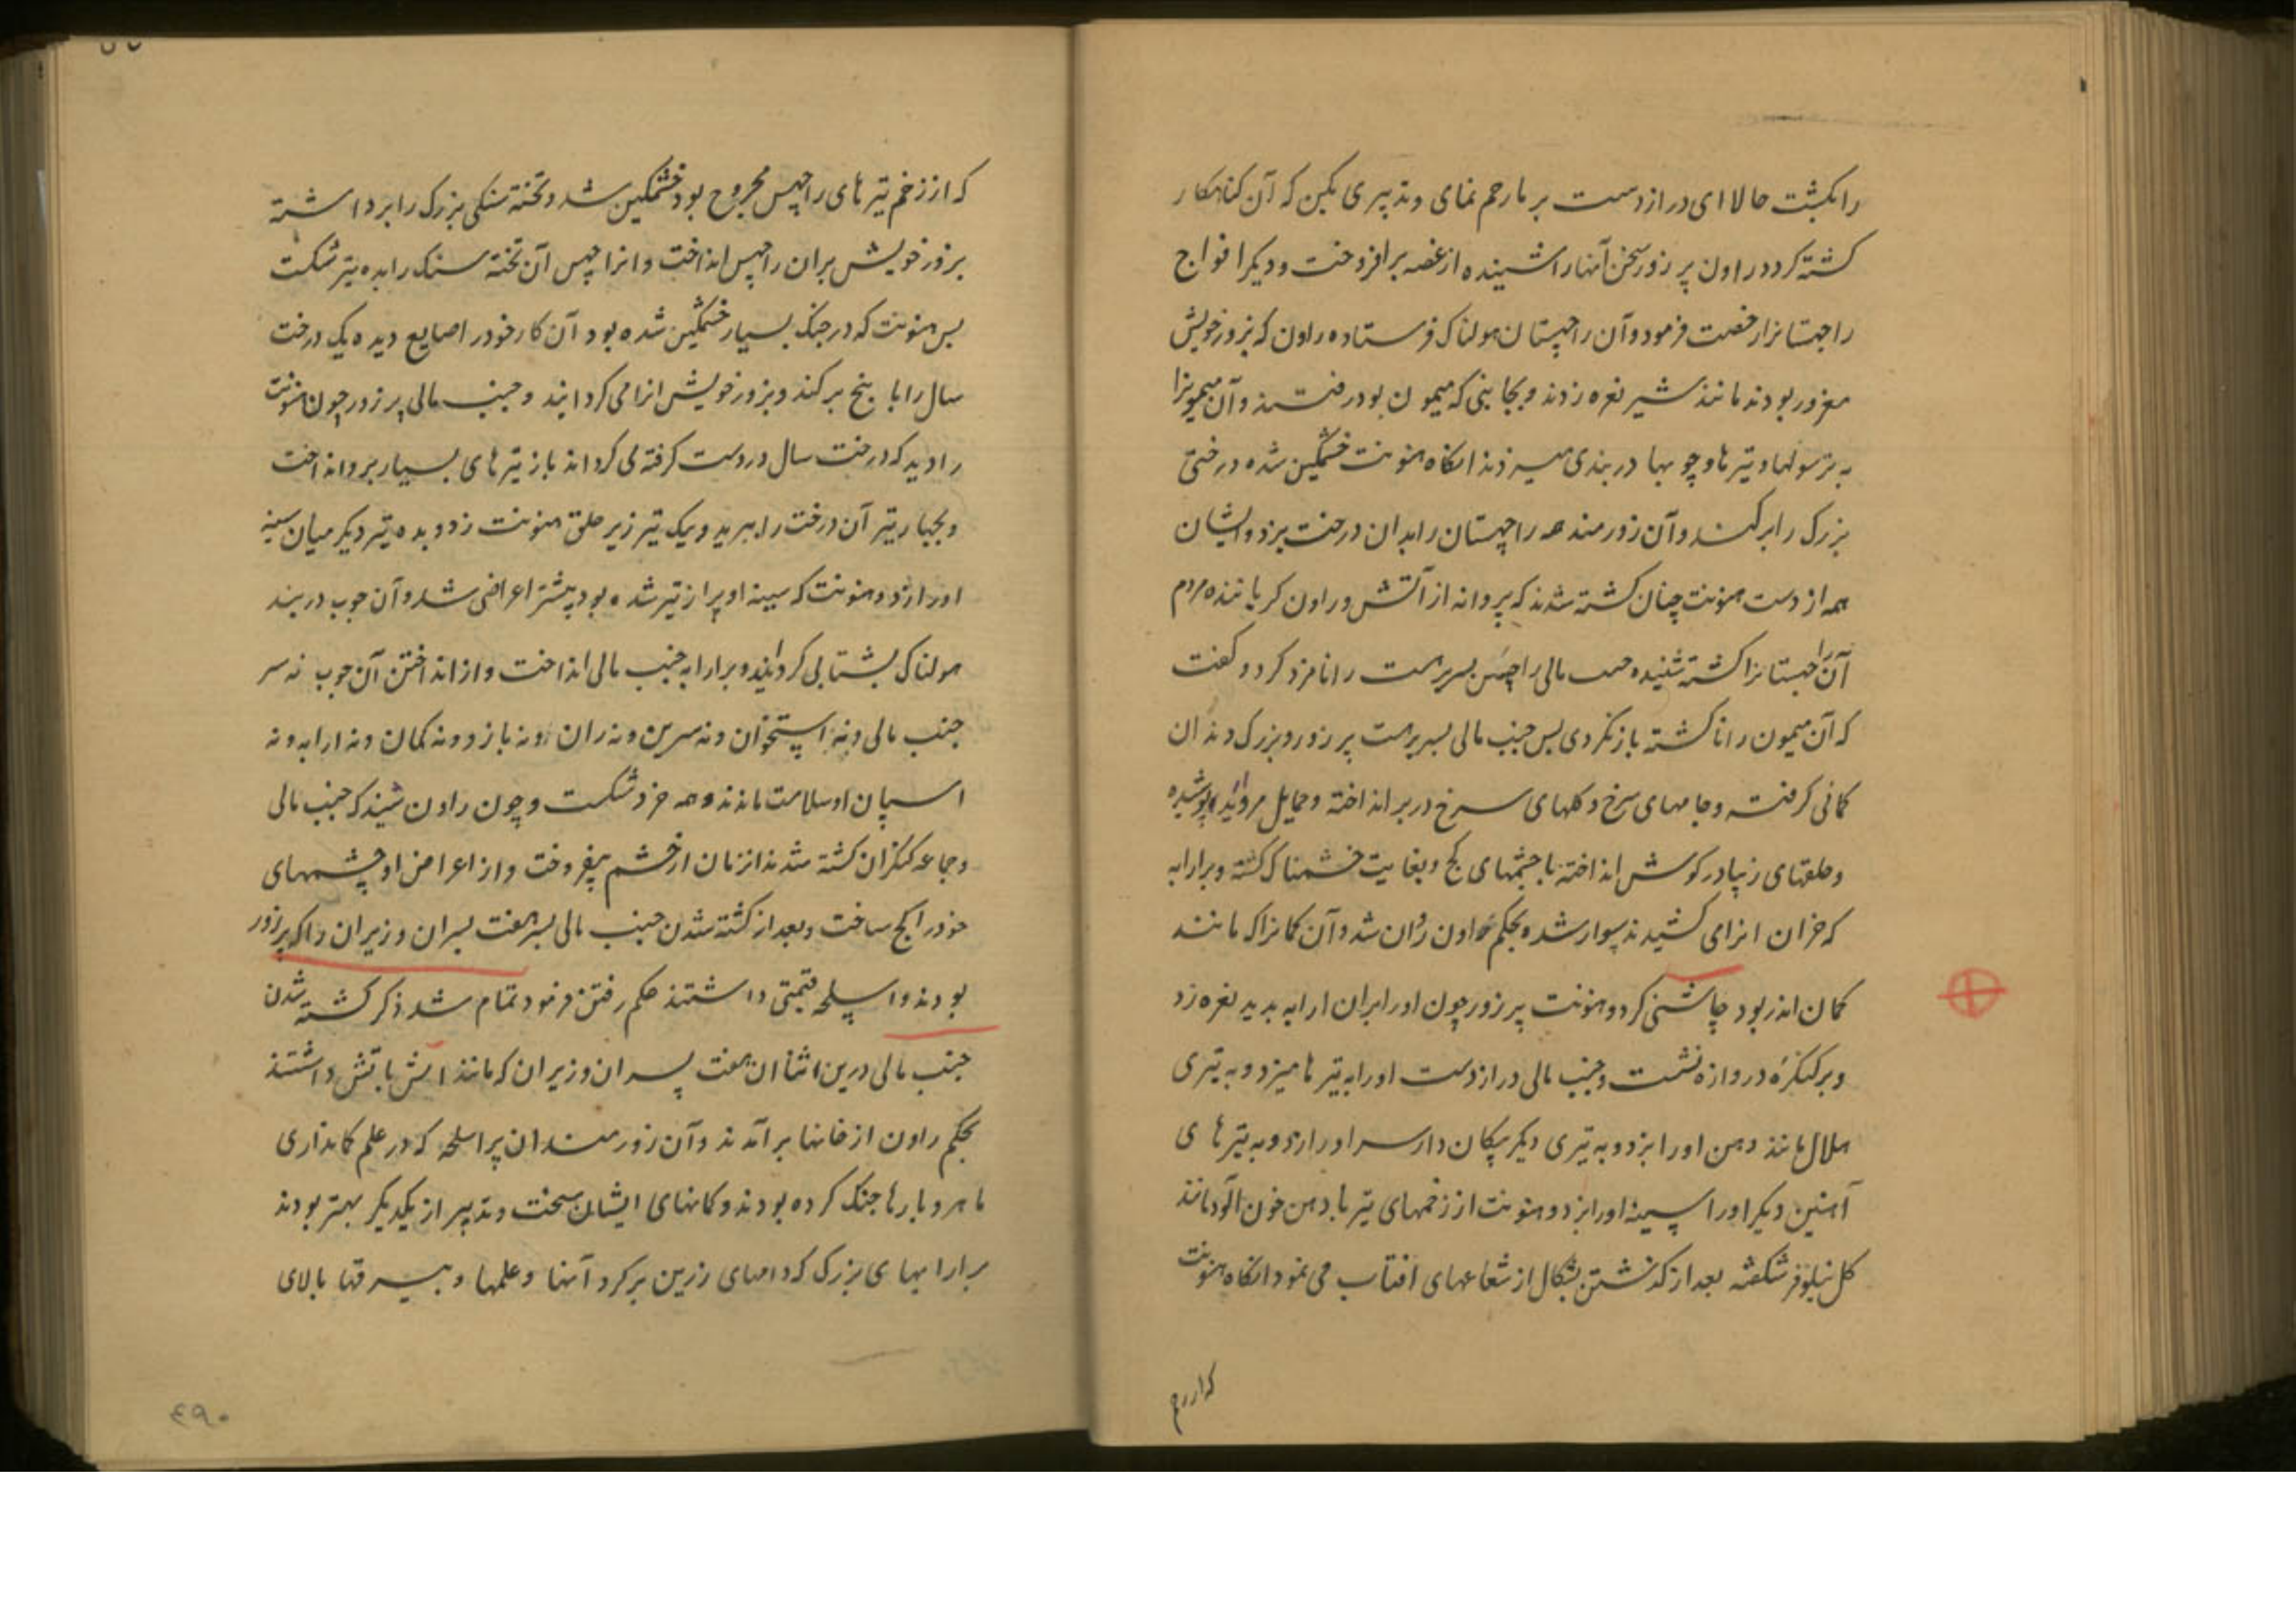 را بکشت حالا ای دراز دست بر ما رحم نمای و تدبیری بکن که آن کناهکار
کشته کردد راون پر زور سخن آنها را شنیده از غصه برافروخت و دیکر افواج
راچهستانرا رخصت فرمود و آن راچهستان هولناک فرستاده راون که بزور خویش
مغرور بودند مانند شیر نعره زدند و بجایی که میمون بود رفتند و آن میمونرا
به ترسولها و تیرها و چوبها دربندی میزدند انکاه هنونت خشمکین شده درختی
بزرک را برکند و آن زورمند همه راچهستان را بدان درخت بزد و ایشان
همه از دست هنونت چنان کشته شدند که پروانه از آتش و راون کریاننده مردم
آن راچهستانرا کشته شنیده جنب مالی راچهس پسر پرهست را نامزد کرد و کفت
که آن میمون را ناکشته باز نکردی پس جنب مالی پسر پرهست پر زور و بزرک دندان
کمانی کرفت و جامهای سرخ و کلهای سرخ در بر انداخته و حمایل مروارید پوشیده
و حلقهای زیبا در کوش انداخته با چشمهای کج و بغایت خشمناک کشته و بر ارابه
که خران انرا می کشیدند سوار شد و بحکم راون روان شد و آن کمانرا که مانند
کمان اندر بود چاشنی کرد و هنونت پر زور چون او را بران ارابه بدید نعره زد
و بر کنکره دروازه نشست و جنب مالی دراز دست او را به تیرها میزد و به تیری
هلال مانند دهن او را بزد و به تیری دیکر پیکان دار سر او را زد و به تیرهای
آهنین دیکر او را سینه او را بزد و هنونت از زخمهای تیر با دهن خون آلود مانند
کل نیلوفر شکفته بعد از کذشتن بشکال از شعاعهای افتاب می نمود انکاه هنونت
که از زخم
که از زخم تیرهای راچهس مجروح بود خشمکین شد و تخته سنکی بزرک را برداشته
بزور خویش بران راچهس انداخت و انرا چهس آن تخته سنک را بده تیر شکست
پس هنونت که در جنک بسیار خشمکین شده بود آن کار خود را ضایع دیده یک درخت
سال را با بیخ برکند و بزور خویش انرا می کردانید و جنب مالی پر زور چون هنونت
را دید که درخت سال در دست کرفته می کرداند باز تیرهای بسیار برو انداخت
و بچهار تیر آن درخت را ببرید و یک تیر زیر حلق هنونت زد و بده تیر دیکر میان سینه
او را زد و هنونت که سینه او پر از تیر شده بود پیشتر اعراضی شد و آن چوب دربند
هولناک بشتابی کردانیده بر ارابه جنب مالی انداخت و از انداختن آن چوب نه سر
جنب مالی و نه استخوان و نه سرین و نه ران و نه بازو و نه کمان و نه ارابه و نه
اسپان او سلامت ماندند و همه خرد شکست و چون راون شنید که جنب مالی
و جماعه کنکران کشته شدند انزمان از خشم بیفروخت و از اعراض او چشمهای
خود را کج ساخت و بعد از کشته شدن جنب مالی پسر هفت پسران وزیران را که پر زور
بودند و اسلحه قیمتی داشتند حکم رفتن فرمود تمام شد ذکر کشته شدن
جنب مالی درین اثنا ان هفت پسران وزیران که مانند اتش تابش داشتند
بحکم راون از خانها برآمدند و آن زورمندان پر اسلحه که در علم کمانداری
ماهر و بارها جنک کرده بودند و کمانهای ایشان سخت و تدبیر از یکدیکر بهتر بودند
بر ارابهای بزرک که دامهای زرین بر کرد آنها و علمها و بیرقها بالای
۴۹۰